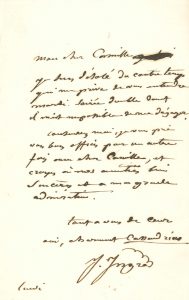 mon cher Camille
je suis désolé du contre temps
qui me prive de vous entendre
mardi soirée double dont
il m'est impossible de me dégager
conservez moi, je vous prie
vos bons offices pour un autre
fois mon cher Camille, et
croyez à mes amitiés bien
sincères et à ma grande
admiration.
tout à vous de cœur
J. Ingres
lundi